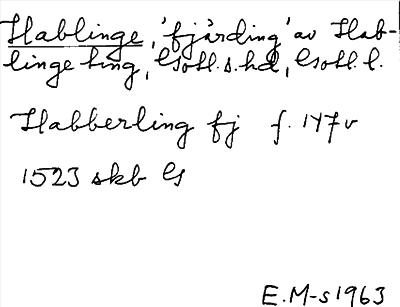 Hablinge, 'fjärding' av Hab-
linge ting, Gotl.s.hd, Gotl.l.
Habberling fj f. 147v
1523 skb G
E.M-s 1963